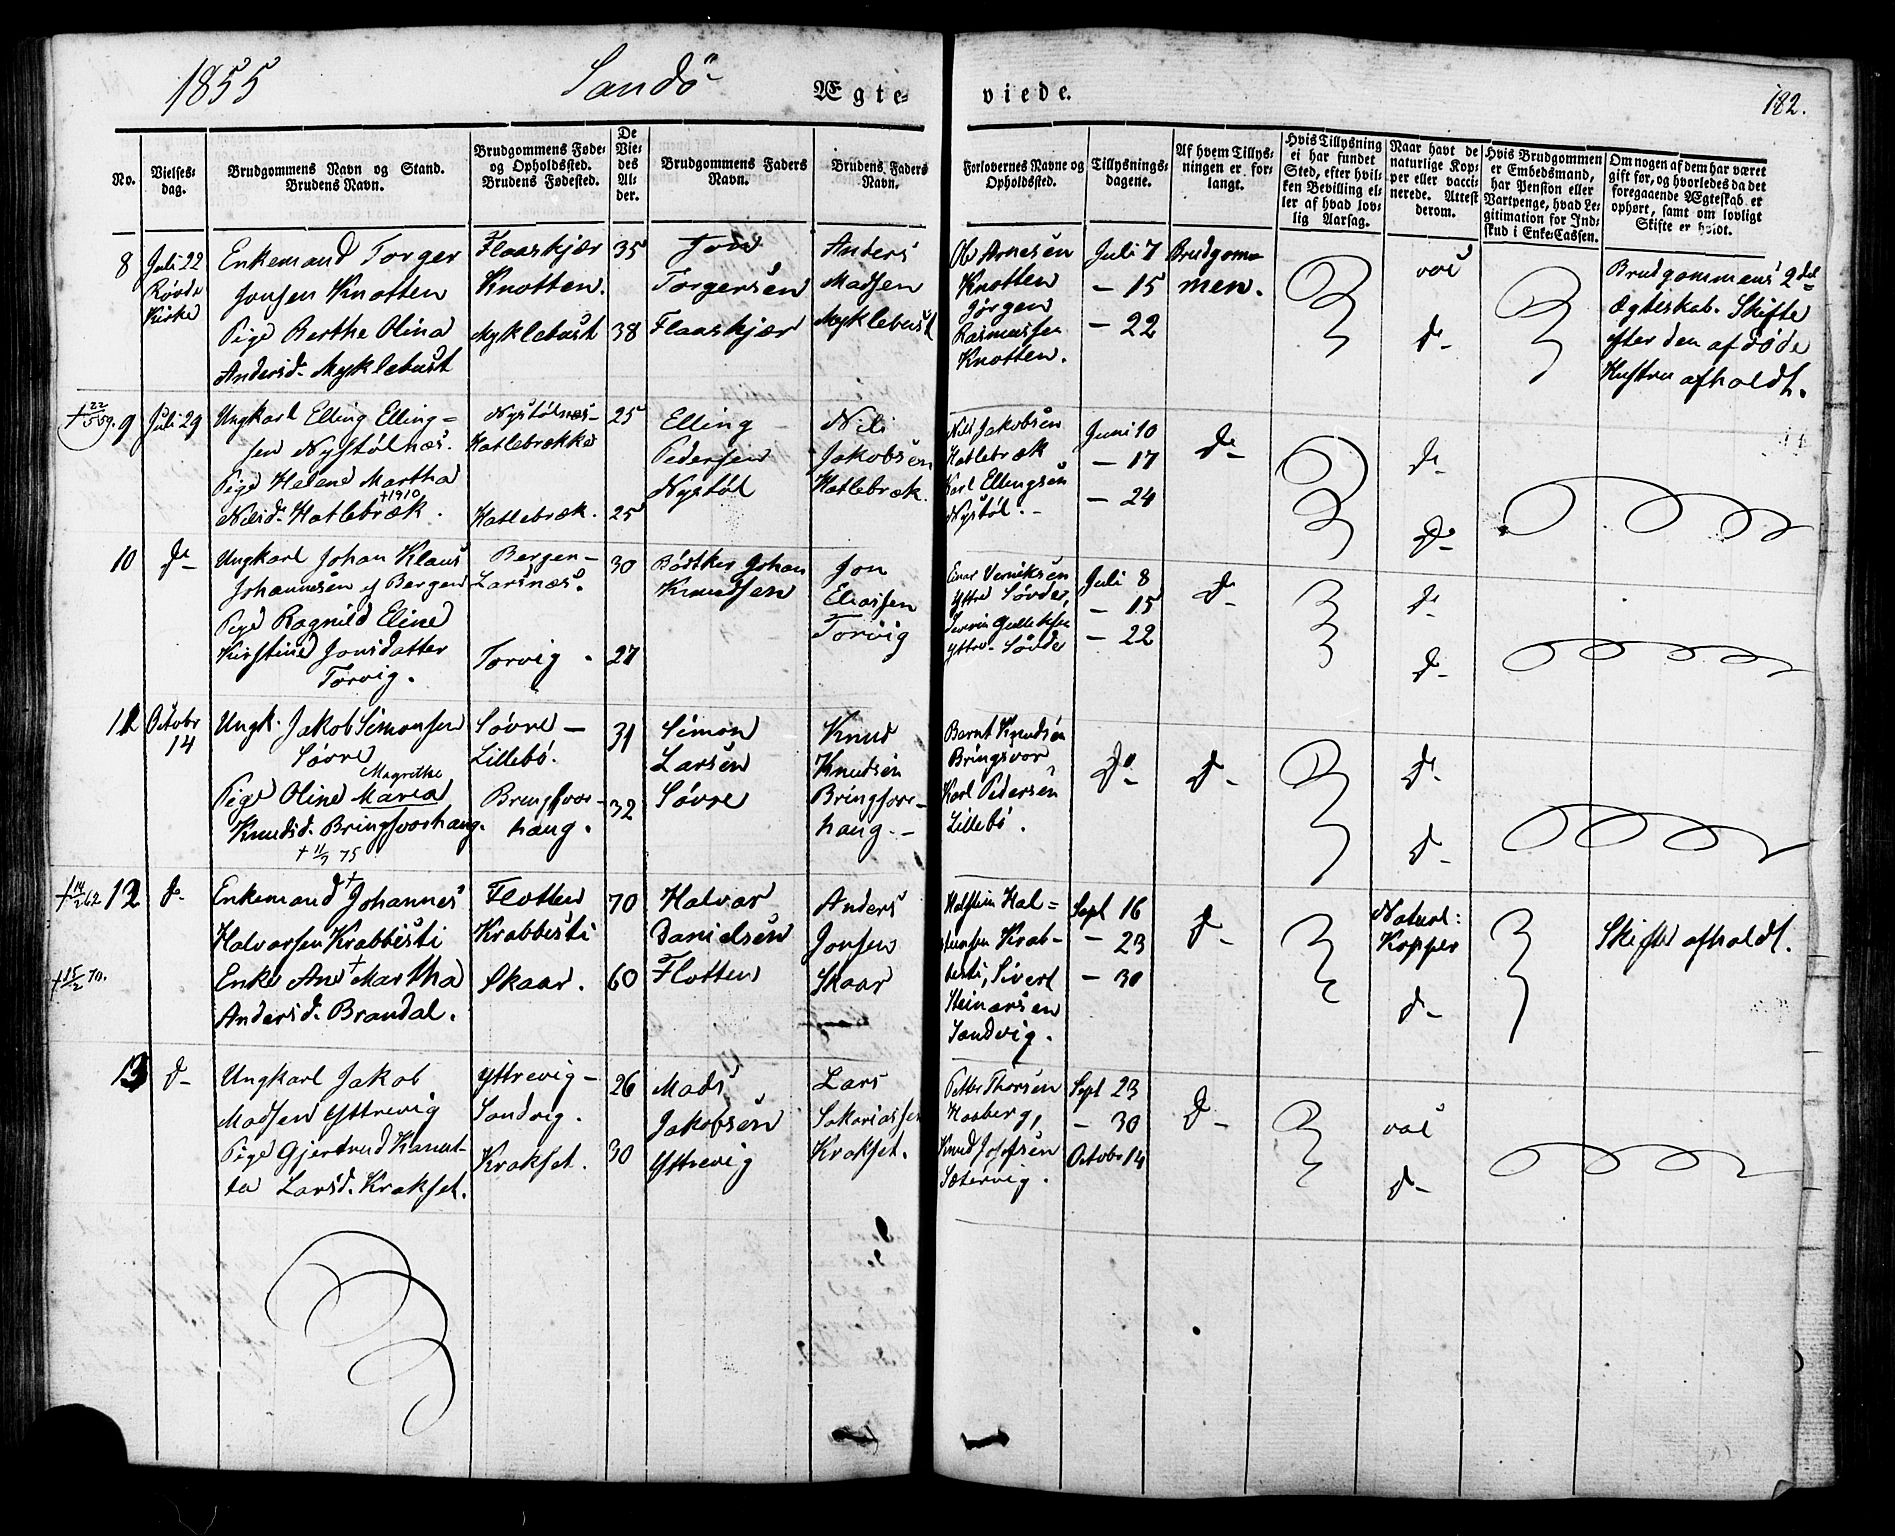 1855 Sandö Ægte- viede. 182.
No.
Vielses-
dag.
Brudgommens Navn og Stand.
Brudens Navn.
Brudgommens Føde-
og Opholdssted.
Brudens Fødested.
De
Vie-
des
Al-
der.
Brudgommens Faders
Navn.
Brudens Faders
Navn.
Forlovernes Navne og
Opholdssted.
Tillysnings-
dagene.
Af hvem Tillys-
ningen er for-
langt.
Hvis Tillysning
ei har fundet
Sted, efter hvil-
ken Bevilling el-
ler af hvad lov-
lig Aarsag.
Naar havt de
naturlige Kop-
per eller vacci-
nerede. Attest
derom.
Hvis Brudgommen
er Embedsmand,
har Pension eller
Vartpenge, hvad Le-
gitimation for Ind-
skud i Enke-Cassen.
Om nogen af dem har været
gift før, og hvorledes da det
foregaaende Ægteskab er
ophørt, samt om lovligt
Skifte er holdt.
8
Juli 22
Røvde
Kirke
Enkemand Torger
Jonsen Knotten
Pige Berthe Olina
Andersd. Myklebust
Flaaskjær
Knotten.
Myklebust
35
38
Jon
Torgersen
Flaaskjær
Anders
Madsen
Myklebust
Ole Arnesen
Knotten
Jørgen
Rasmussen
Knotten.
Juli 7
- 15
- 22
Brudgom-
men.
vac
do
Brudgommens 2det
Ægteskab. Skifte
efter den afdøde
Hustru afholdt.
9
Juli 29
Ungkarl Elling Elling=
sen Nystølnæs.
Pige Helene Martha
+1910
Nilsd. Hatlebræk.
Nystølnæs-
Hatlebrække
Hatlebræk.
25
25
Elling
Pedersen
Nystøl
Nils
Jakobsen
Hatlebræk.
Nils Jakobsen
Hatlebræk
Karl Ellingsen
Nystøl.-
Juni 10
- 17
- 24
do
do
do
10
do
Ungkarl Johan Klaus
Johannesen af Bergen
Pige Ragnild Eline
Kirstine Jonsdatter
Torvig.
Bergen-
Larsnæs.
Torvig.
30
27
Bödtker Johan
Knudsen
Jon
Eliassen
Torvig
Yttre Søvde,
Yttre Søvde
Juli 8
- 15
- 22
do
do
do
11
Octobr
14
Ungk. Jakob Simonsen
Søvre
Magrethe
Pige Oline Maria
Knudsd. Bringsvorhaug.
+ 11/7 75
Søvre-
Lillebø.
Bringsvor-
haug.
31
32
Simon
Larsen
Søvre
Knud
Knudsen
Bringsvor-
haug.-
Bernt Knudsen
Bringsvor
Karl Pedersen
Lillebø.
do
do
do
do
12
do
Enkemand + Johannes
Halvorsen Krabbesti
Enke Ane + Martha
Andersd. Brandal.
+ 15/2 70.
Flotten
Krabbesti
Skaar.
70
60
Halvor
Danielsen
Flotten
Anders
Jonsen
Skaar
Krab-
besti, Sivert
Steinarsen
Sandvig.
Sept 16
- 23
- 30
do
Naturl:
Kopper
do
Skifte afholdt.
13
do
Ungkarl Jakob
Madsen Yttrevig
Pige Gjertrud Kanut-
ta Larsd. Krakset.
Yttrevig-
Sandvig.
Krakset.
26
30
Mads
Jakobsen
Yttrevig
Lars
Sakariassen
Krakset.
Petter Thorsen
Haaberg,
Knud Josefsen
Sætervig.
Sept 23
- 30
Octobr 14
do
vac
do